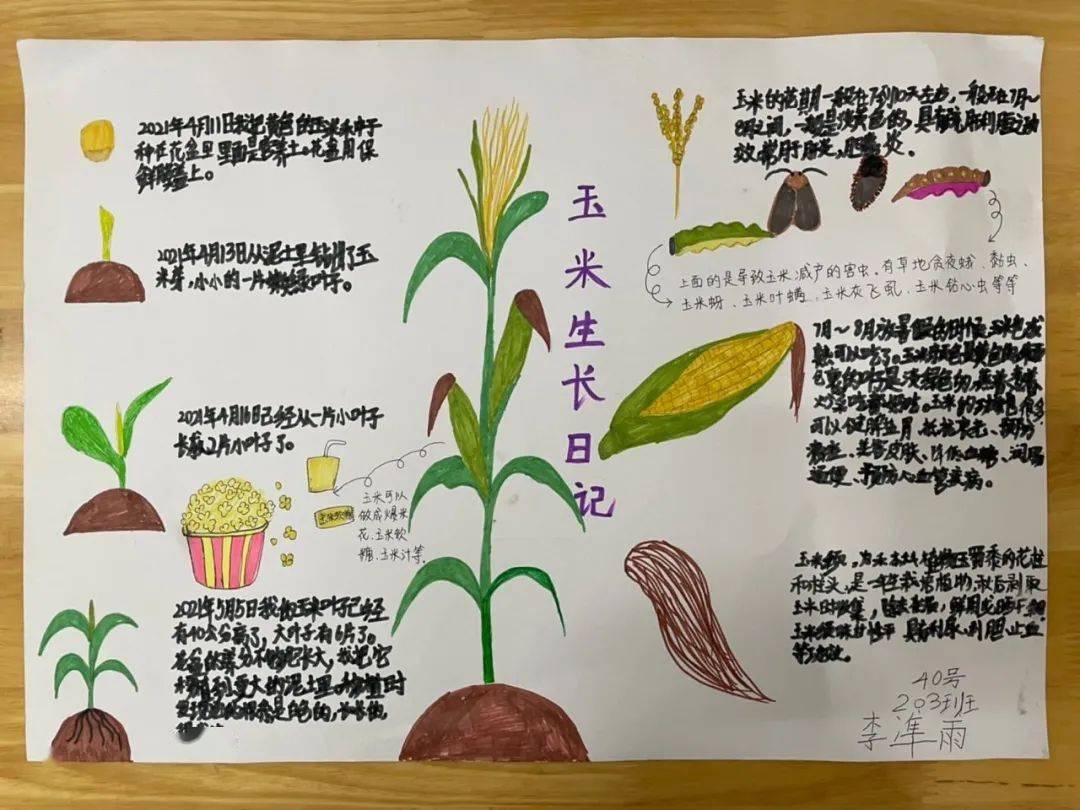 玉米生长日记
2021年4月11日我把黄色的玉米种子
种在花盆里里面是营养土。花盆用保
鲜膜盖上。
2021年4月13日从泥土里钻出了玉
米芽,小小的一片嫩绿叶子。
2021年4月16日已经从一片小叶子
长成2片小叶子了。
玉米软糖
玉米可以
做成爆米
花、玉米软
糖、玉米汁等。
2021年5月5日我的玉米叶子已经
有40公分高了,大叶子有6片了。
花盆的养分不够它长大,我把它
移植到更大的泥土里。移植时
发现它的根须是白色的,长长的,
玉米的花期一般在7到10天左右,一般在7月~
8月之间,一般是淡黄色的,具有疏肝利胆之功
效,常用于肝炎,胆囊炎。
上面的是导致玉米减产的害虫。有草地贪夜蛾、黏虫、
玉米蚜、玉米叶螨、玉米灰飞虱、玉米钻心虫等等
7月~8月放暑假的时候玉米也成
熟可以吃了。玉米颜色是黄色的
包裹的叶子是浅绿色的,蒸着煮着
可以健脾益胃、抵抗衰老、预防
便秘、美容皮肤、降低血糖、润肠
通便、预防心血管疾病。
玉米须。为禾本科植物玉蜀黍的花柱
和柱头,是一年生栽培植物,秋后剥取
玉米时收集,除去杂质,鲜用或晒干
玉米须味甘性平 具有利尿、利胆、止血
等功效。
40号
203班
李準雨